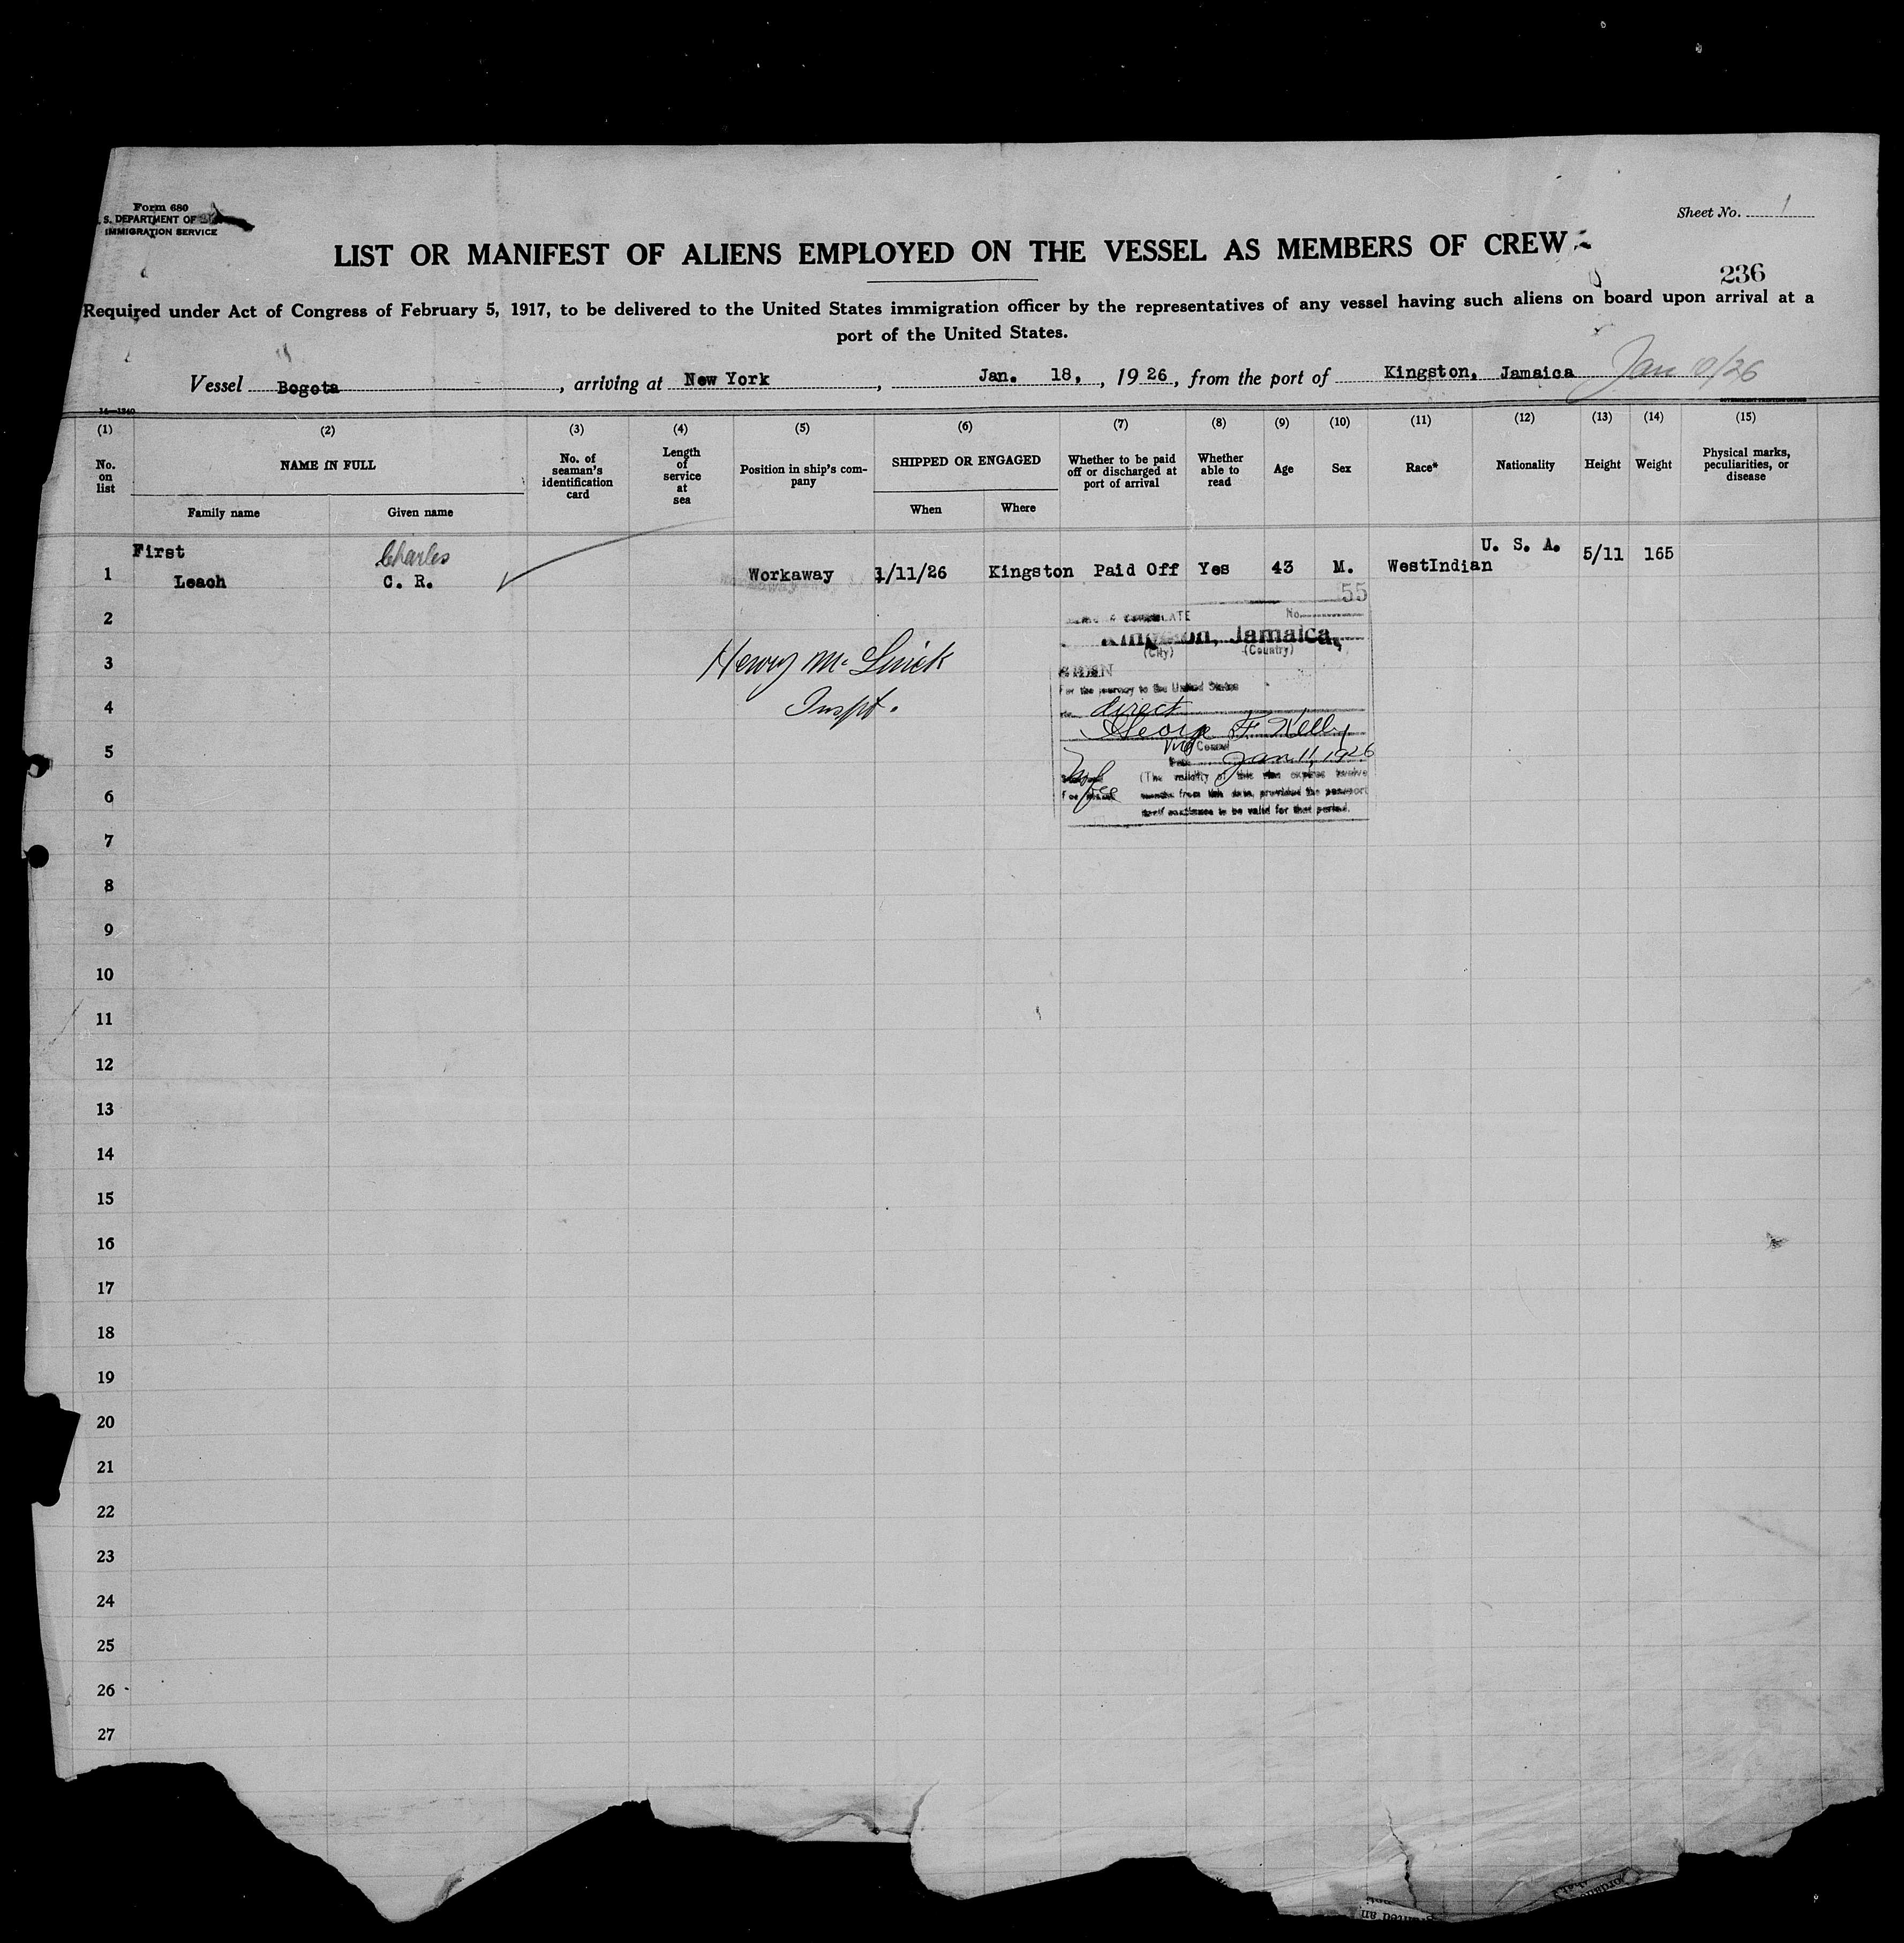 Form 680
S. DEPARTMENT OF
IMMIGRATION SERVICE
Sheet No. 1
LIST OR MANIFEST OF ALIENS EMPLOYED ON THE VESSEL AS MEMBERS OF CREW
236
Required under Act of Congress of February 5, 1917, to be delivered to the United States immigration officer by the representatives of any vessel having such aliens on board upon arrival at a
port of the United States.
Vessel Bogota, arriving at New York, Jan. 18, 1926, from the port of Kingston, Jamaica Jan /26
14—1240
(1) (2) (3) (4) (5) (6) (7) (8) (9) (10) (11) (12) (13) (14) (15)
No. on list
NAME IN FULL
Family name Given name
No. of seaman's identification card
Length of service at sea
Position in ship's company
SHIPPED OR ENGAGED
When Where
Whether to be paid off or discharged at port of arrival
Whether able to read
Age
Sex
Race*
Nationality
Height
Weight
Physical marks, peculiarities, or disease
First Charles U. S. A.
1 Leach C. R. Workaway 1/11/26 Kingston Paid Off Yes 43 M. WestIndian 5/11 165
55
2
No.
Kingston, Jamaica,
(City) (Country)
3 Henry
For the journey to the United States
4 Inspt. direct
George F. Kelly
5 Vice Consul
Jan. 11, 1926
(The validity of this visa expires twelve
6 months from this date, provided the passport
itself continues to be valid for that period.
7
8
9
10
11
12
13
14
15
16
17
18
19
20
21
22
23
24
25
26
27